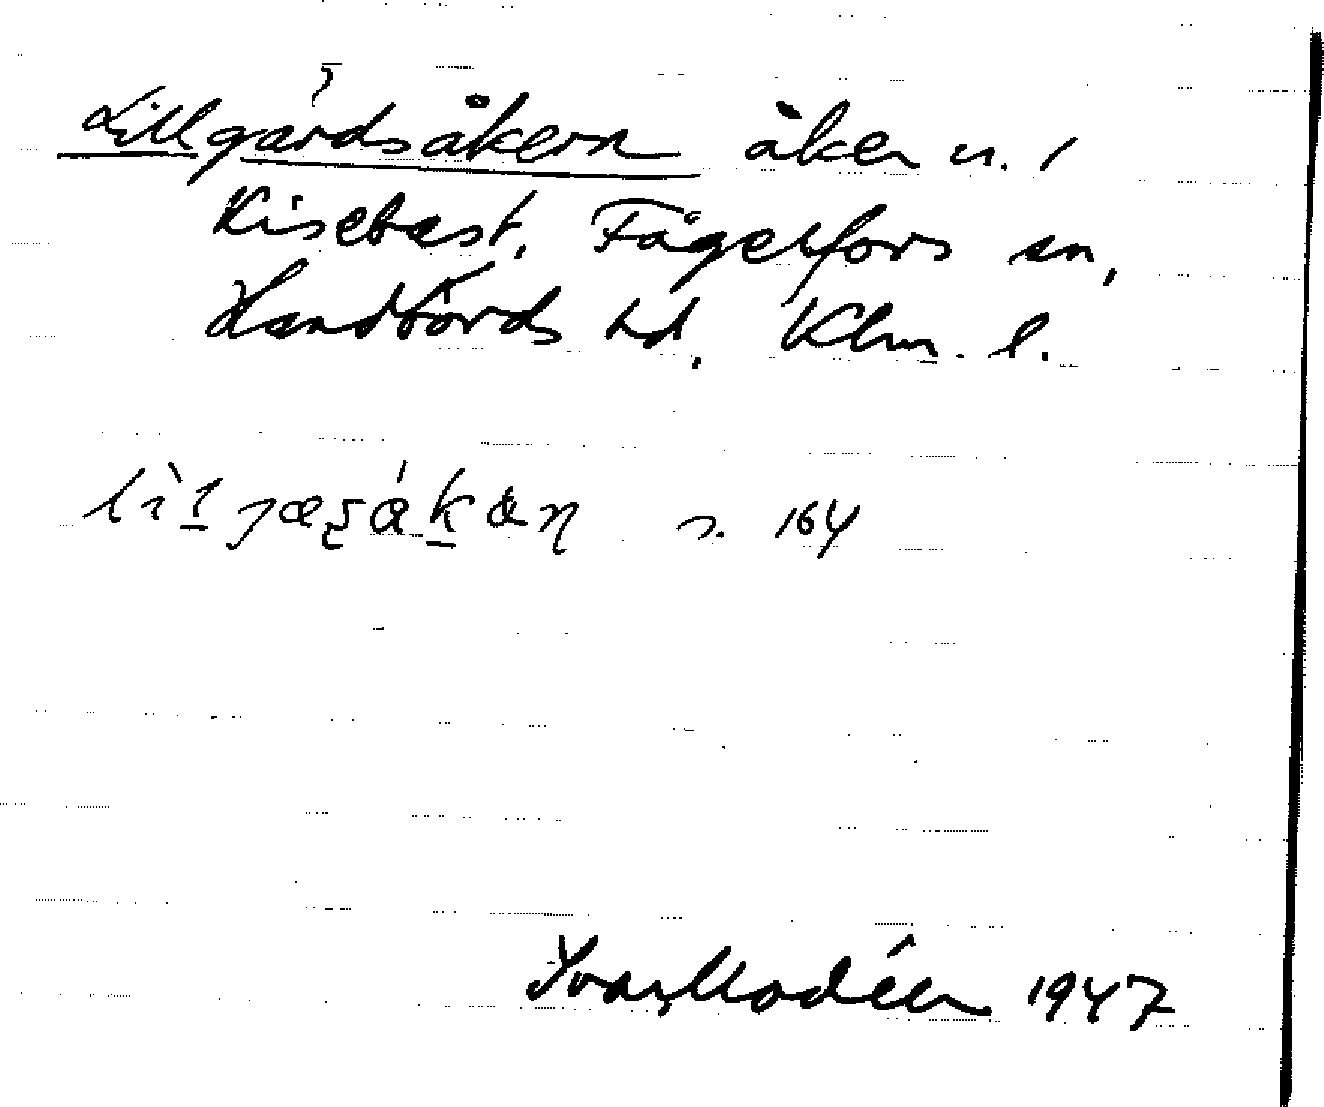 Lillgårdsåkern åker u. /
Kisebast, Fågelfors sn,
Handbörds hd. Klm. l.
s. 164
Ivar Modéer 1947